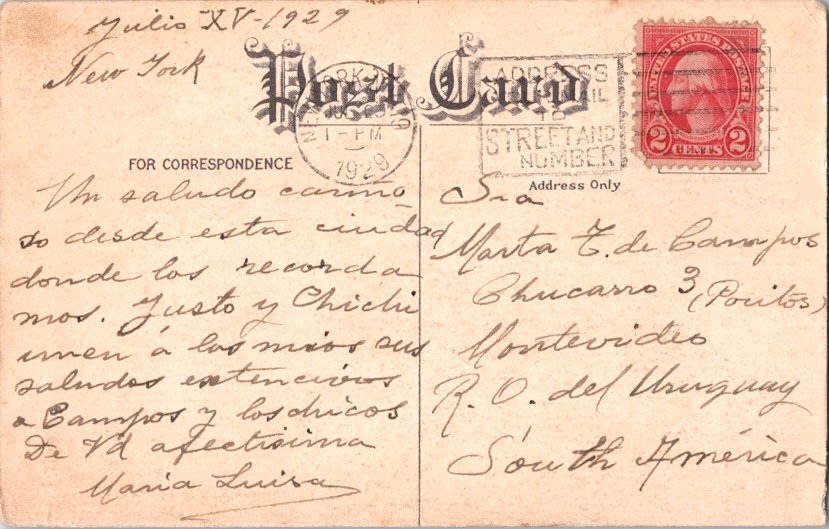 Julio XV-1929
New York
Post Card
NEW YORK, N.Y.
1-PM
1929
ADDRESS
MAIL
TO
STREET AND
NUMBER
UNITED STATES POSTAGE
2 CENTS 2
FOR CORRESPONDENCE
Address Only
Un saludo cariño-
so desde esta ciudad
donde los recorda
mos. Justo y Chichi
unen á los mios sus
saludos extencivos
a Campos y los chicos
De Vd afectisima
Maria Luisa
Sra
Marta T. de Campos
Chucarro 3 (Pocitos)
Montevideo
R. O. del Uruguay
South América